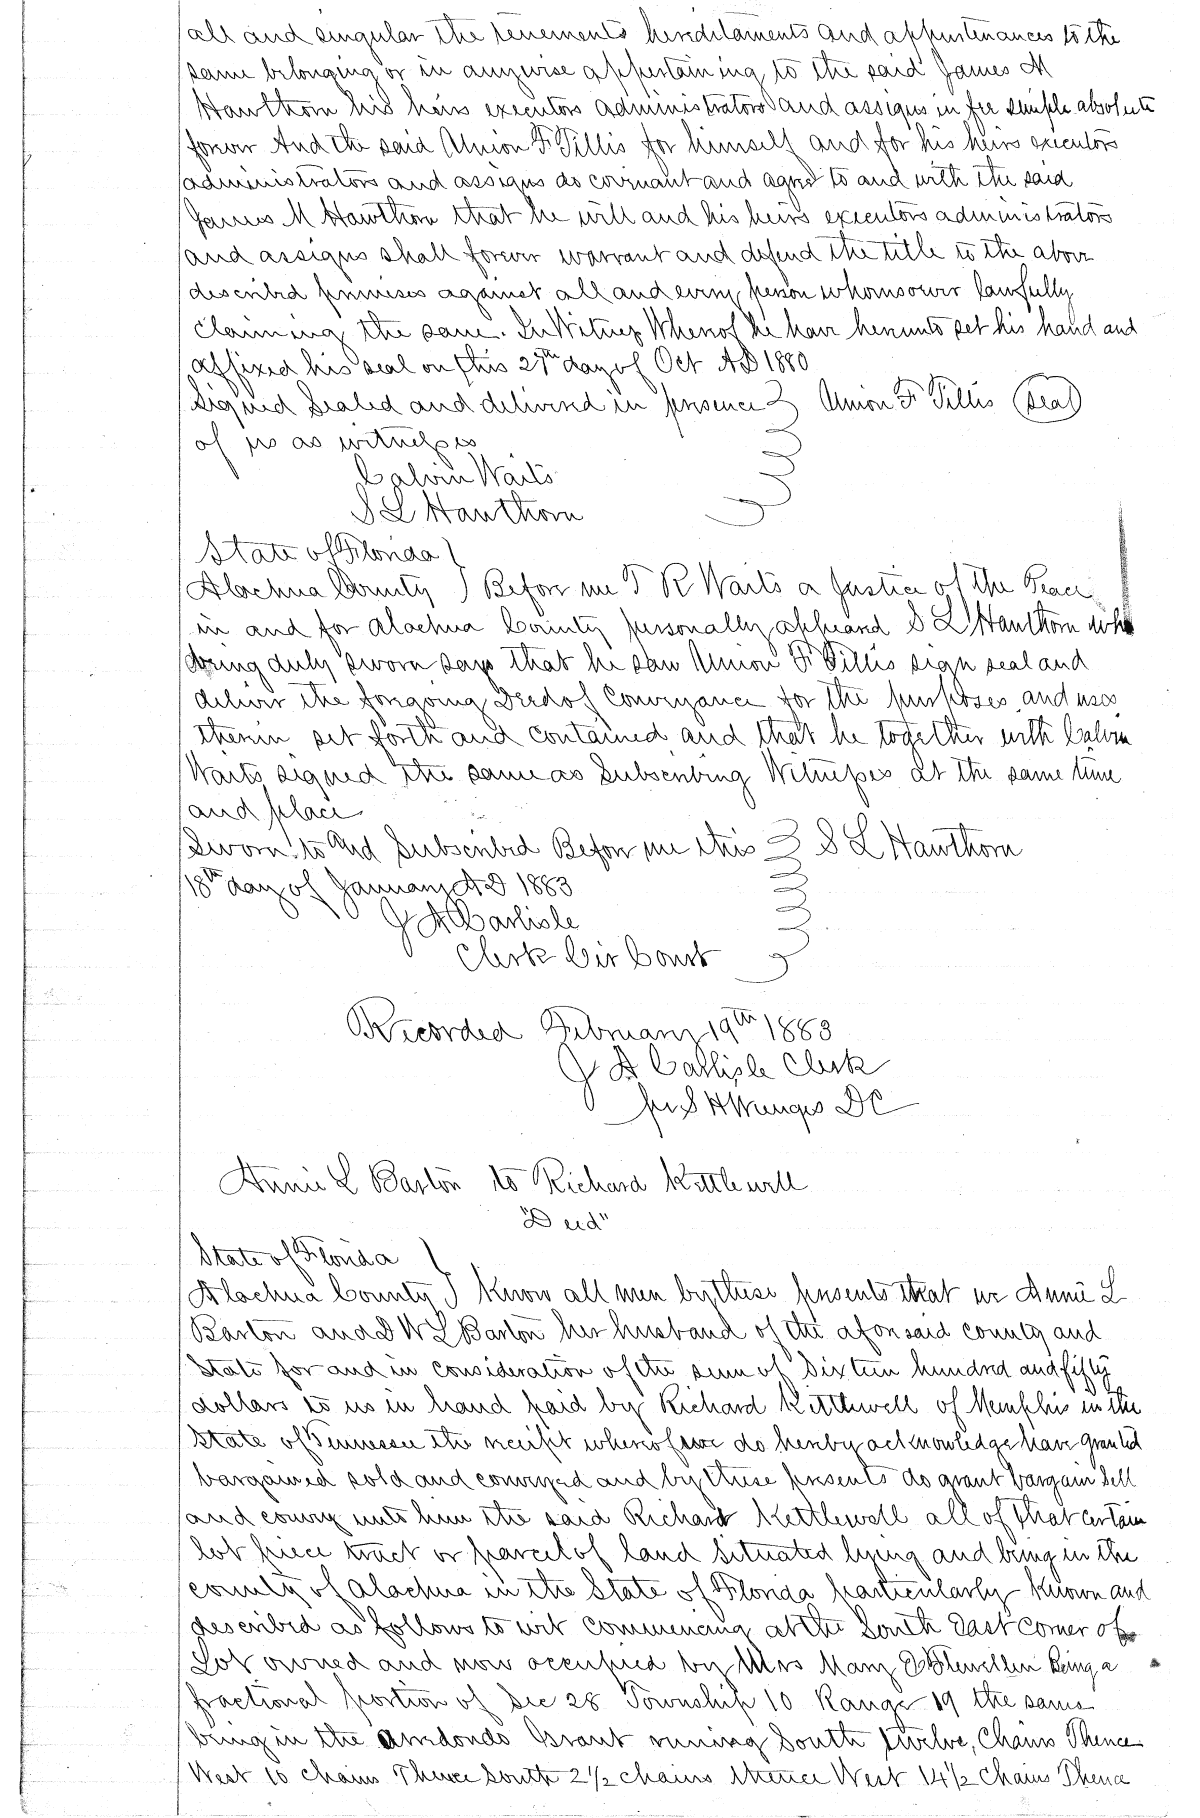 all and singular the tenements hereditaments and appurtenances to the
same belonging or in anywise appertaining to the said James M
Hawthorn his heirs executors administrators and assigns in fee simple absolute
forever And the said Union F Tillis for himself and for his heirs executors
administrators and assigns do covenant and agree to and with the said
James M Hawthorn that he will and his heirs executors administrators
and assigns shall forever warrant and defend the title to the above
described premises against all and every person whomsoever lawfully
claiming the same. In Witness Whereof he have hereunto set his hand and
affixed his seal on this 27th day of Oct AD 1880
Signed Sealed and delivered in presence Union F Tillis (Seal)
of us as witnesses
Calvin Waits
S L Hawthorn
State of Florida
Alachua County Before me T R Waits a Justice of the Peace
in and for Alachua County personally appeard S L Hawthorn who
being duly sworn says that he saw Union F Tillis sign seal and
deliver the foregoing Deed of Conveyance for the purposes and uses
therein set forth and contained and that he together with Calvin
Waits signed the same as Subscribing Witnesses at the same time
and place
Sworn to and Subscribed Before me this S L Hawthorn
18th day of January AD 1883
J A Carlisle
Clerk Cir Court
Recorded February 19th 1883
J A Carlisle Clerk
per S H Wienges DC
Annie L Barton to Richard Kettlewell
"Deed"
State of Florida
Alachua County Know all men by these presents that we Annie L
Barton and D W L Barton her husband of the aforesaid county and
State for and in consideration of the sum of Sixteen hundred and fifty
dollars to us in hand paid by Richard Kettlewell of Memphis in the
State of Tennessee the receipt whereof we do hereby acknowledge have granted
bargained sold and conveyed and by these presents do grant bargain Sell
and convey unto him the said Richard Kettlewell all of that certain
lot piece tract or parcel of land situated lying and being in the
county of Alachua in the State of Florida particularly known and
described as follows to wit commencing at the South East corner of
Lot owned and now occupied by Mrs Mary Stewellen Being a
fractional portion of Sec 28 Township 10 Range 19 the same
being in the Arredondo Grant runing South twelve, Chains Thence
West 10 chains Thence South 2 1/2 chains thence West 14 1/2 Chains Thence